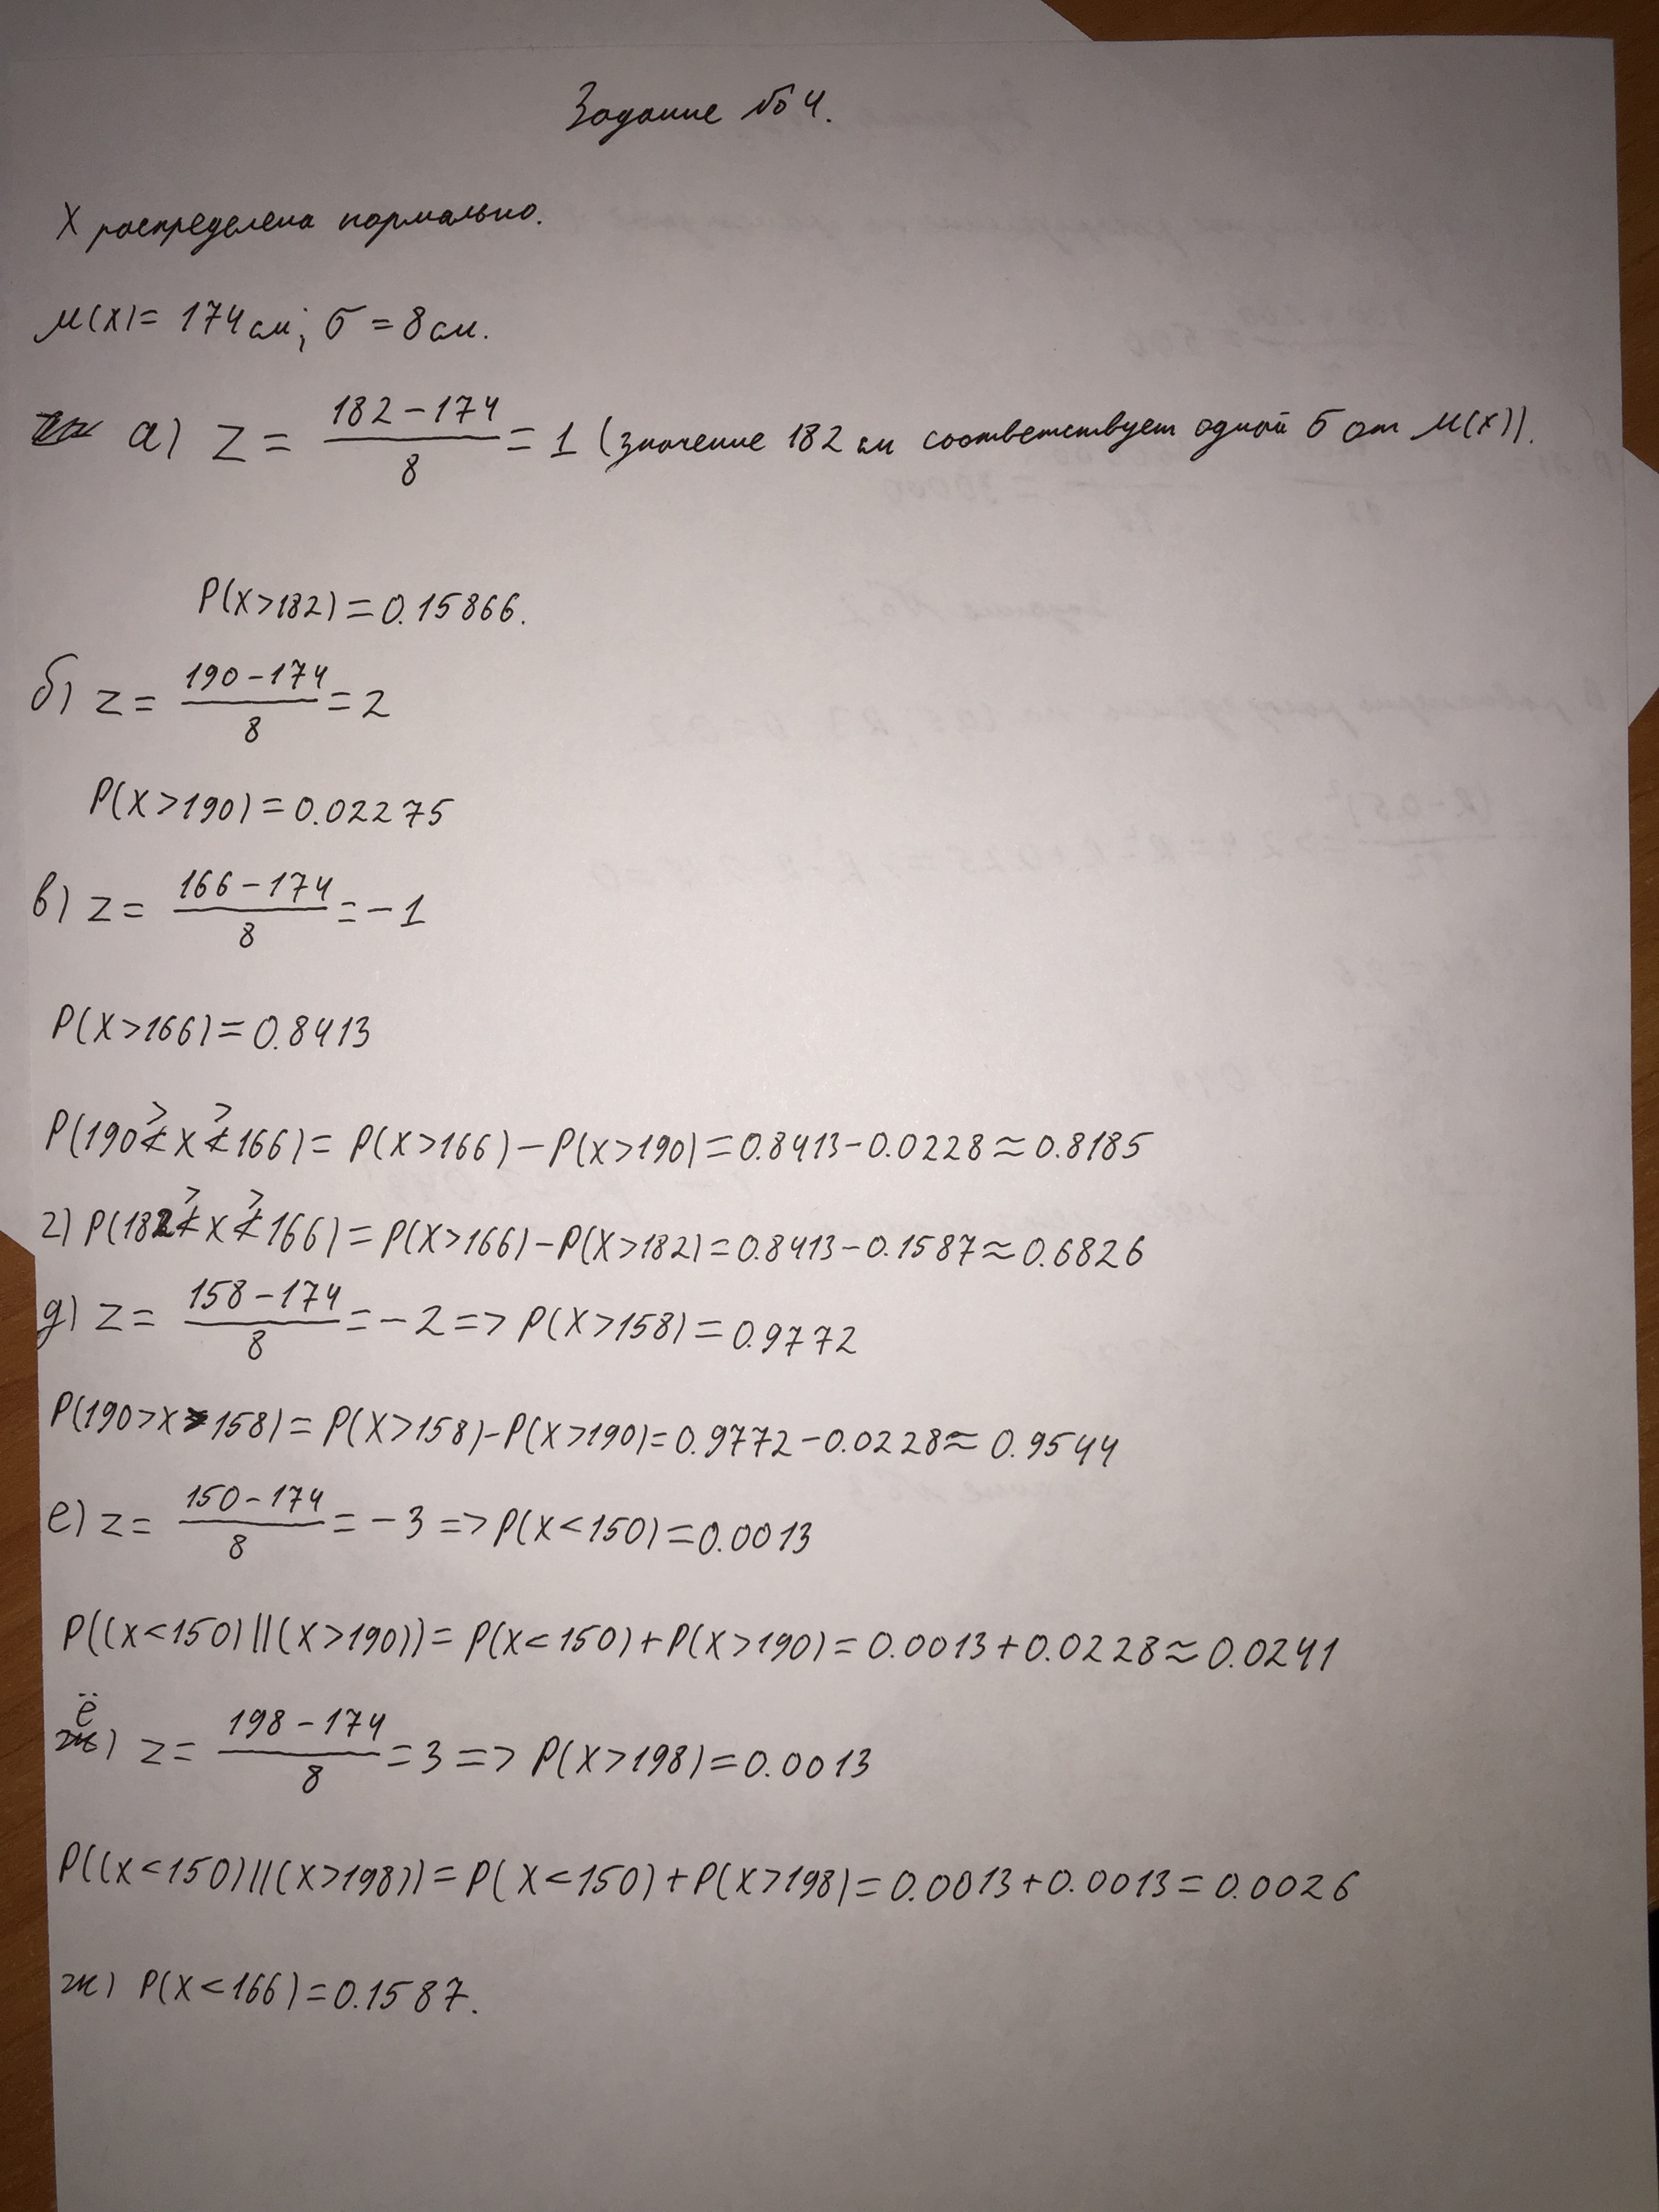 Задание №4.
X распределена нормально.
M(X) = 174 см; σ = 8 см.
а) Z = (182 - 174)/8 = 1 (значение 182 см соответствует одной σ от M(X)).
P(X>182) = 0.15866.
б) Z = (190 - 174)/8 = 2
P(X>190) = 0.02275
в) Z = (166 - 174)/8 = -1
P(X>166) = 0.8413
P(190 > X > 166) = P(X>166) - P(X>190) = 0.8413 - 0.0228 ≈ 0.8185
г) P(182 > X > 166) = P(X>166) - P(X>182) = 0.8413 - 0.1587 ≈ 0.6826
д) Z = (158 - 174)/8 = -2 => P(X>158) = 0.9772
P(190>X>158) = P(X>158) - P(X>190) = 0.9772 - 0.0228 ≈ 0.9544
е) Z = (150 - 174)/8 = -3 => P(X<150) = 0.0013
P((X<150)||(X>190)) = P(X<150) + P(X>190) = 0.0013 + 0.0228 ≈ 0.0241
ё) Z = (198 - 174)/8 = 3 => P(X>198) = 0.0013
P((X<150)||(X>198)) = P(X<150) + P(X>198) = 0.0013 + 0.0013 = 0.0026
ж) P(X<166) = 0.1587.